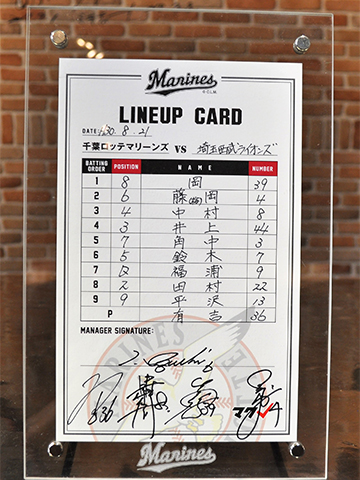 Marines
LINEUP CARD
DATE: H30.8.21
千葉ロッテマリーンズ VS 埼玉西武ライオンズ
BATTING ORDER POSITION NAME NUMBER
1 8 岡 39
2 6 藤岡 4
3 4 中村 8
4 3 井上 44
5 7 角中 3
6 5 鈴木 7
7 D 福浦 9
8 2 田村 22
9 9 平沢 13
P 有吉 36
MANAGER SIGNATURE:
Marines